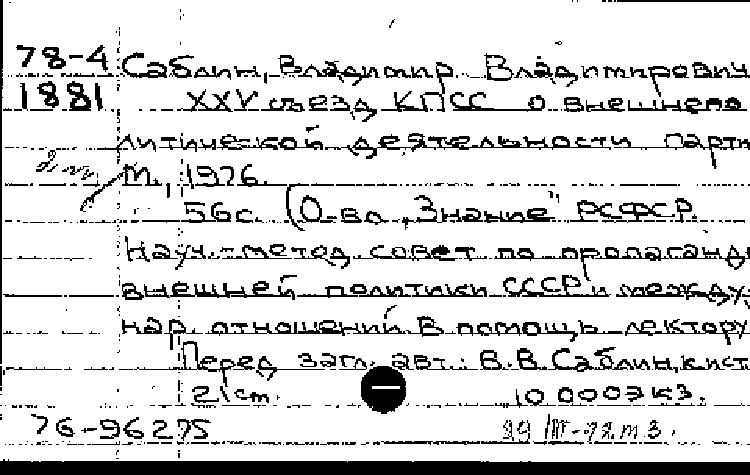 78-4 Саблин, Владимир Владимирович
1881 XXV съезд КПСС о внешнепо
литической деятельности парти
М., 1976.
56с. (О-во „Знание" РСФСР.
Науч.-метод. совет по пропаганде
внешней политики СССР и междуна
нар. отношений. В помощь лектору
Перед загл. авт.: В.В. Саблин, к.ист
21 см. 10 000 экз.
76-96275